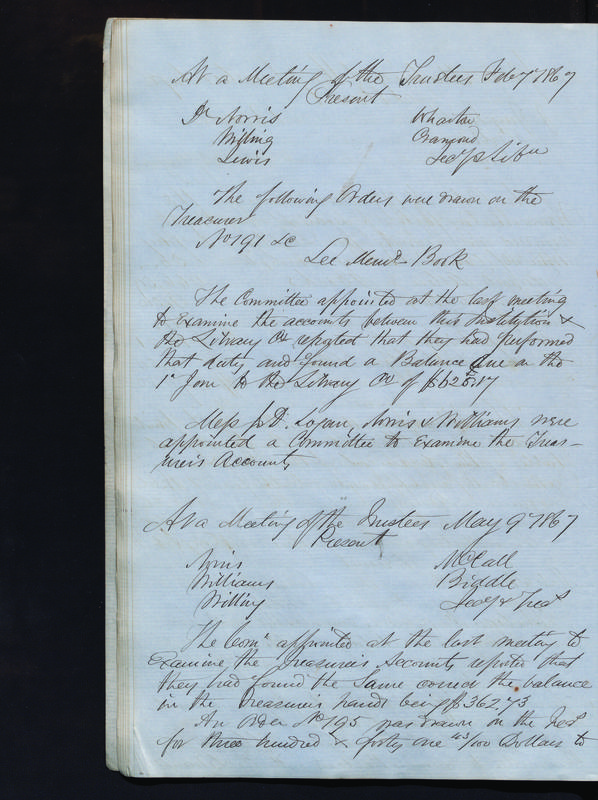 At a Meeting of the Trustees Feb 7th 1867
Present
Dr Norris Wharton
Willing Cramond
Lewis Secy &
The following Orders were drawn on the
Treasurer
No 191 &c
See Memd Book
The Committee appointed at the last meeting
to Examine the accounts between this Institution &
the Library Co reported that they had performed
that duty and found a Balance due on the
1st Jany to the Library Co of $625.17
Mess J. D. Logan, Norris & Williams were
appointed a Committee to Examine the Treas-
urer's Accounts
At a Meeting of the Trustees May 9th 1867
Present
Norris McCall
Williams Biddle
Willing Secy & Treas
The Comm appointed at the last meeting to
Examine the Treasurer's Accounts reported that
they had found the Same correct the balance
in the Treasurer's hands being $362.73
An Order No 195 was drawn on the Treas
for three hundred & forty one 43/100 Dollars to